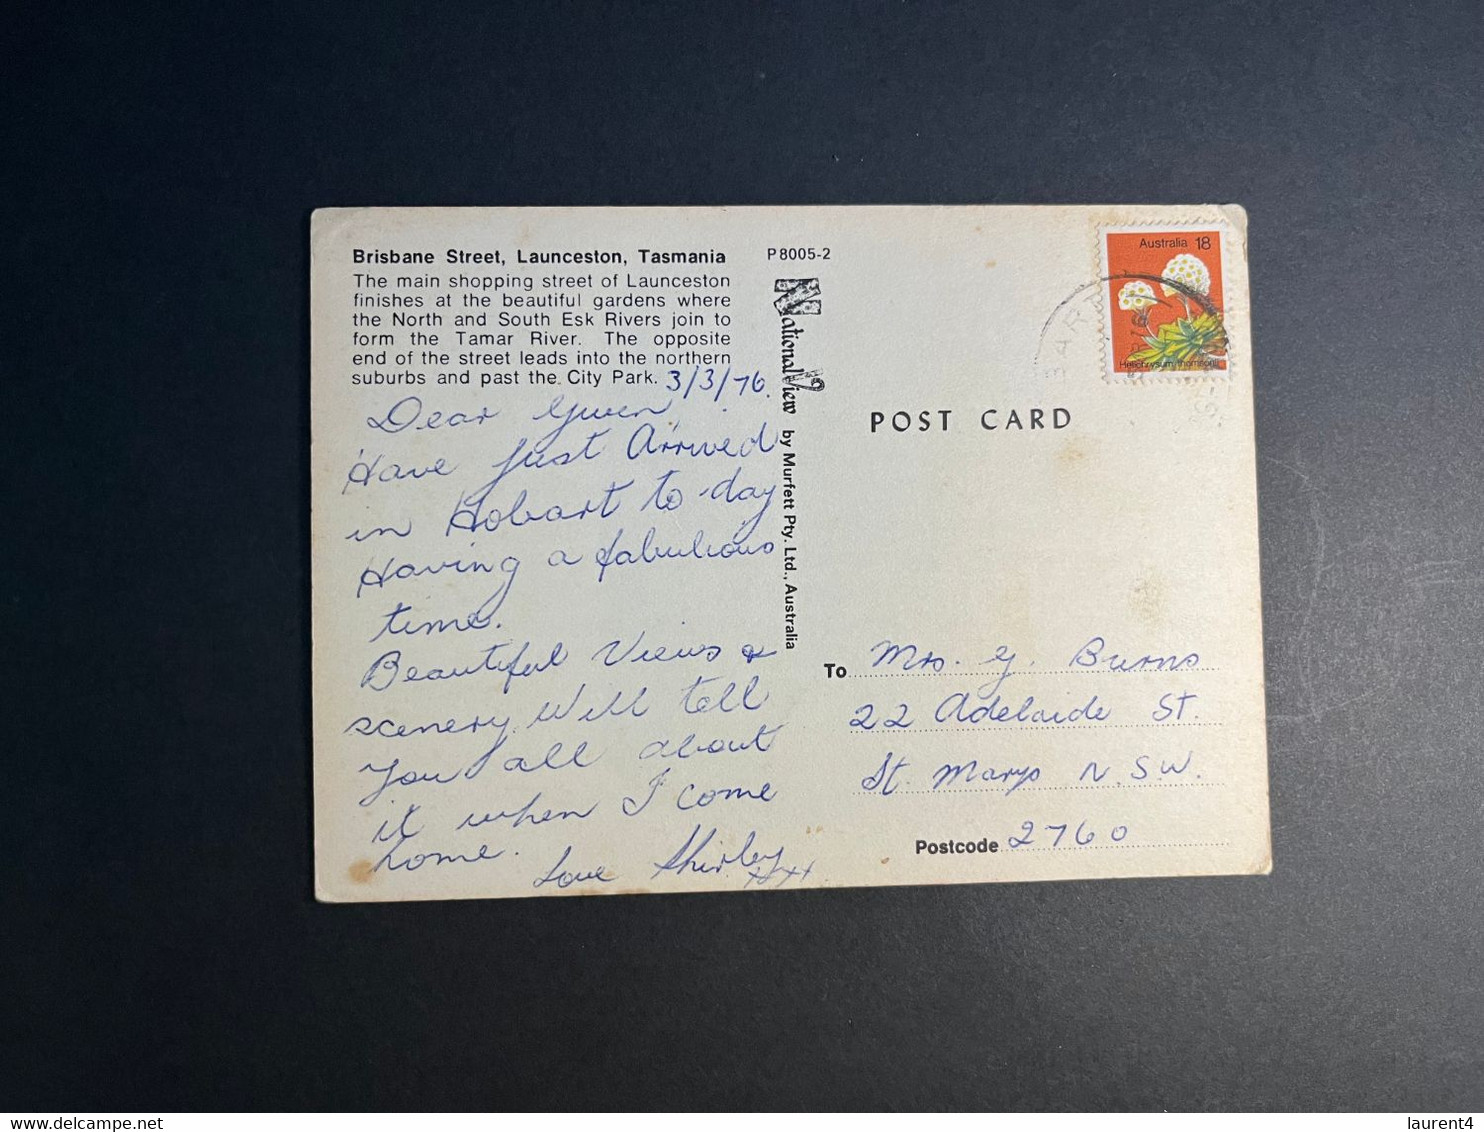 Brisbane Street, Launceston, Tasmania
The main shopping street of Launceston
finishes at the beautiful gardens where
the North and South Esk Rivers join to
form the Tamar River. The opposite
end of the street leads into the northern
suburbs and past the City Park. 3/3/76.
Dear Gwen,
Have Just Arrived
in Hobart to-day
Having a fabulious
time.
Beautiful Views &
scenery. Will tell
You all about
it when I come
home.
Love Shirley
xxxx
P8005-2
National View by Murfett Pty. Ltd., Australia
Australia 18
Helichrysum thomsonii
POST CARD
To Mrs. G. Burns
22 Adelaide St.
St. Marys N.S.W.
Postcode 2760
laurent4